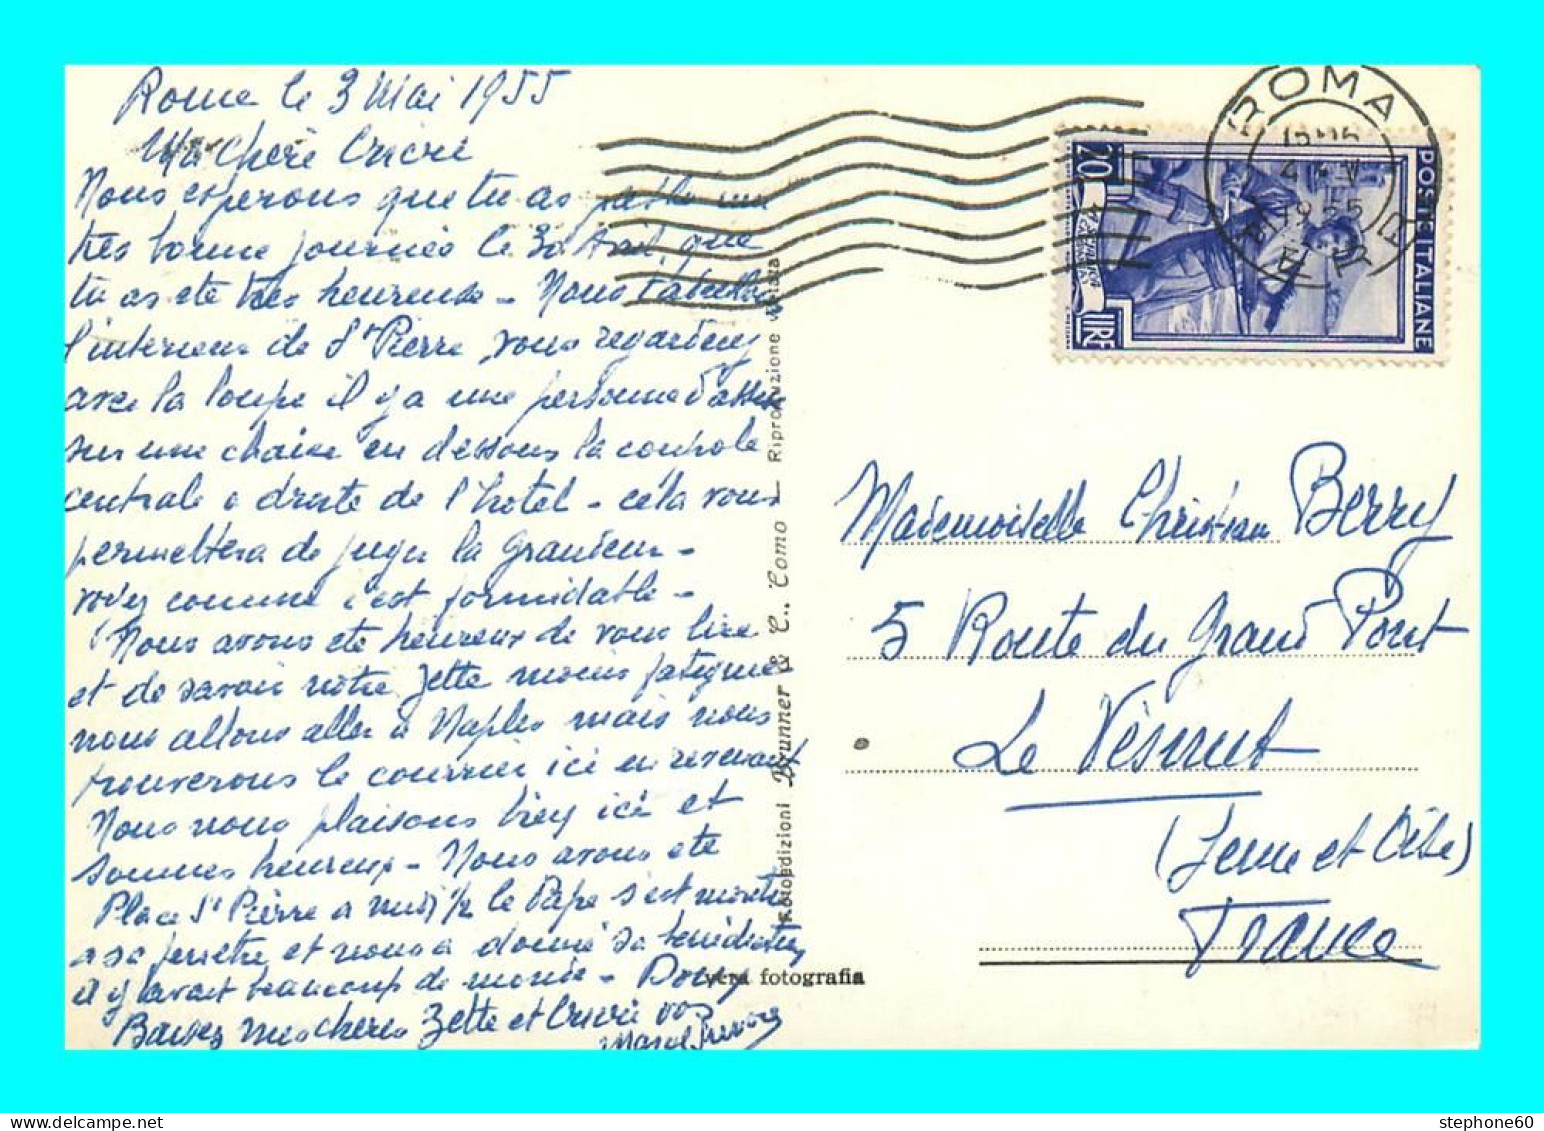 Rome le 3 Mai 1955
Ma chère Cricri
Nous esperons que tu as passé une
très bonne journée le 30 Avril, que
tu as été très heureuse - Nous
l'interieur de St Pierre, vous regardez
avec la loupe il y a une personne d'assise
sur une chaise en dessous la coupole
centrale a droite de l'hotel - cela vous
permettera de juger la grandeur -
voyez comme c'est formidable -
Nous avons été heureux de vous lire
et de savoir notre Zette moins fatiguée
nous allons aller à Naples mais nous
trouverons le courrier ici en revenant
Nous nous plaisons bien ici et
sommes heureux - Nous avons été
Place St Pierre a midi 1/2 le Pape s'est montré
a sa fenetre et nous a donné sa benediction
il y avait beaucoup de monde - Bons
Baisers mes cheres Zette et Cricri vos
Fotoedizioni Brunner & C., Como - Riproduzione vietata
vera fotografia
ROMA
4 - V
1955
POSTE ITALIANE
20
LIRE
Mademoiselle Christian Berry
5 Route du Grand Pont
Le Vésinet
(Seine et Oise)
France
stephone60